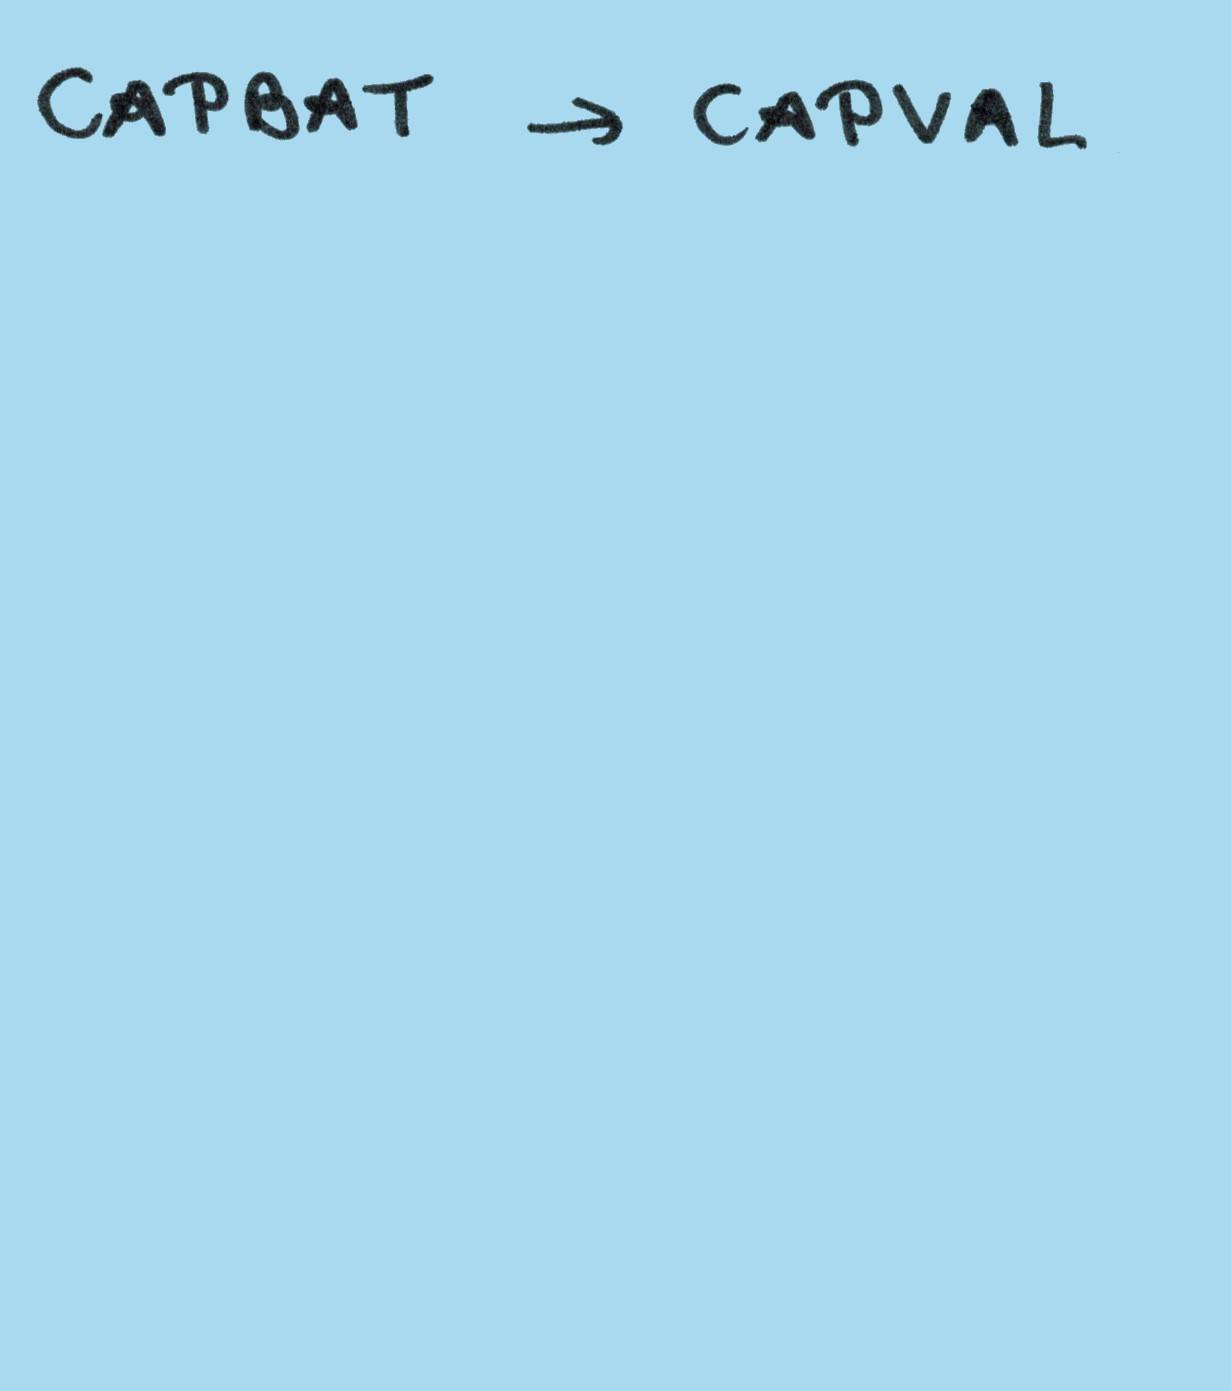 CAPBAT → CAPVAL